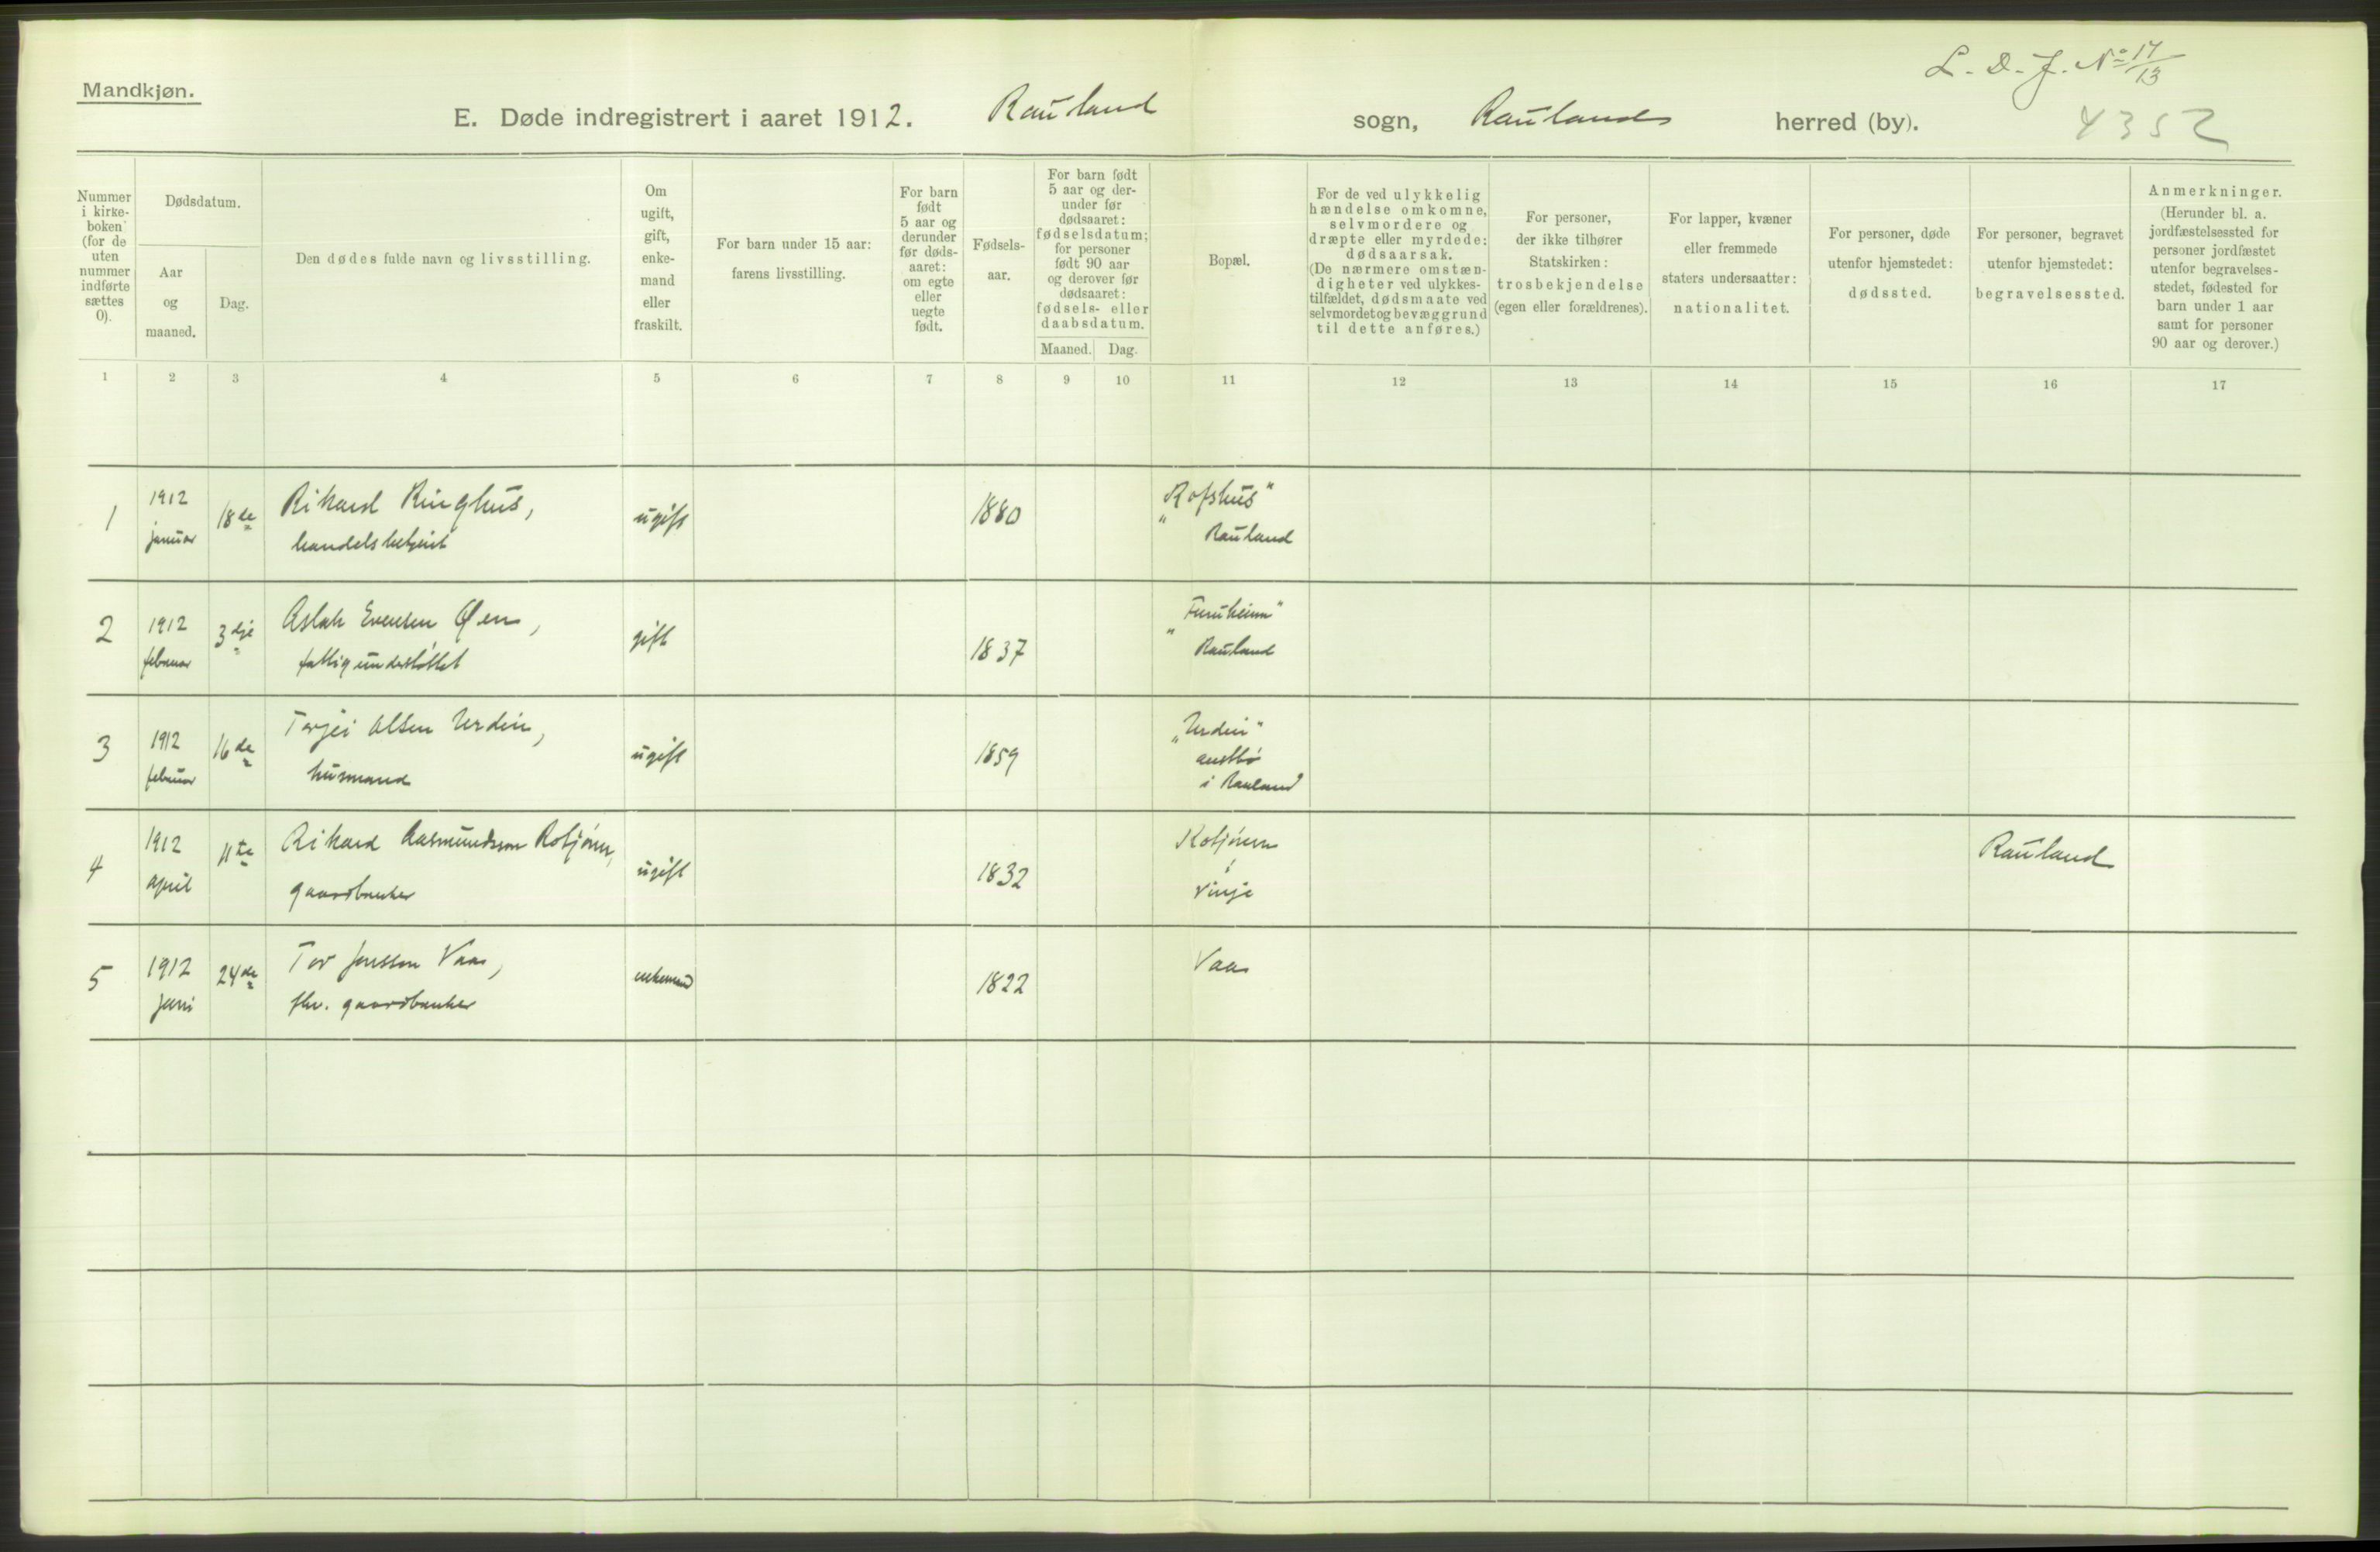 L. D. J. No 17/13
Mandkjøn.
E. Døde indregistrert i aaret 1912. Rauland sogn, Raulands herred (by).
4352
Nummer
i kirke-
boken
(for de
uten
nummer
indførte
sættes
0).
Dødsdatum.
Aar
og
maaned.
Dag.
Den dødes fulde navn og livsstilling.
Om
ugift,
gift,
enke-
mand
eller
fraskilt.
For barn under 15 aar:
farens livsstilling.
For barn
født
5 aar og
derunder
før døds-
aaret:
om egte
eller
uegte
født.
Fødsels-
aar.
For barn født
5 aar og der-
under før
dødsaaret:
fødselsdatum;
for personer
født 90 aar
og derover før
dødsaaret:
fødsels- eller
daabsdatum.
Maaned. Dag.
Bopæl.
For de ved ulykkelig
hændelse omkomne,
selvmordere og
dræpte eller myrdede:
dødsaarsak.
(De nærmere omstæn-
digheter ved ulykkes-
tilfældet, dødsmaate ved
selvmordet og bevæggrund
til dette anføres.)
For personer,
der ikke tilhører
Statskirken:
trosbekjendelse
(egen eller forældrenes).
For lapper, kvæner
eller fremmede
staters undersaatter:
nationalitet.
For personer, døde
utenfor hjemstedet:
dødssted.
For personer, begravet
utenfor hjemstedet:
begravelsessted.
Anmerkninger.
(Herunder bl. a.
jordfæstelsessted for
personer jordfæstet
utenfor begravelses-
stedet, fødested for
barn under 1 aar
samt for personer
90 aar og derover.)
1 2 3 4 5 6 7 8 9 10 11 12 13 14 15 16 17
1 1912 januar 18de Rikard Ringhus, ugift 1880 "Rofshus"
handelsbetjent Rauland
2 1912 februar 3dje Aslak Evensen Øen, gift 1837 "Furuheim"
fattigunderstøttet Rauland
3 1912 februar 16de Torjei Olsen Urdein, ugift 1859 "Urdein"
husmand austbø
i Rauland
4 1912 april 11te Rikard Aasmundsson Kotjønn, ugift 1832 Kotjønn Rauland
gaardbruker i
Vinje
5 1912 juni 24de Tov Jonsson Vaa, enkemand 1822 Vaa
fhv. gaardbruker